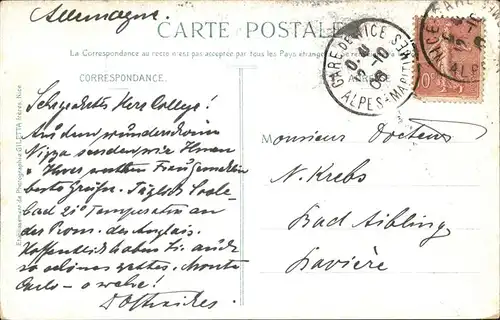 Allemagne.
CARTE POSTALE
La Correspondance au recto n'est pas acceptée par tous les Pays étrangers
CORRESPONDANCE.
GARE DE NICE
2-10
06
ALPES-MARIT
Sehr geehrter Herr College!
Aus dem wunderschönen
Nizza senden wir Ihnen
u Ihrer werthen Frau Gemahlin
beste Grüße. Täglich Soole-
bad 21° Temperatur an
der Prom. des Anglais.
Hoffentlich haben Sie auch
so schönes Wetter. Monte
Carlo - o wehe!
Monsieur Docteur
N. Krebs
Bad Aibling
Bavière
Etablissement de Photographie GILETTA frères, Nice